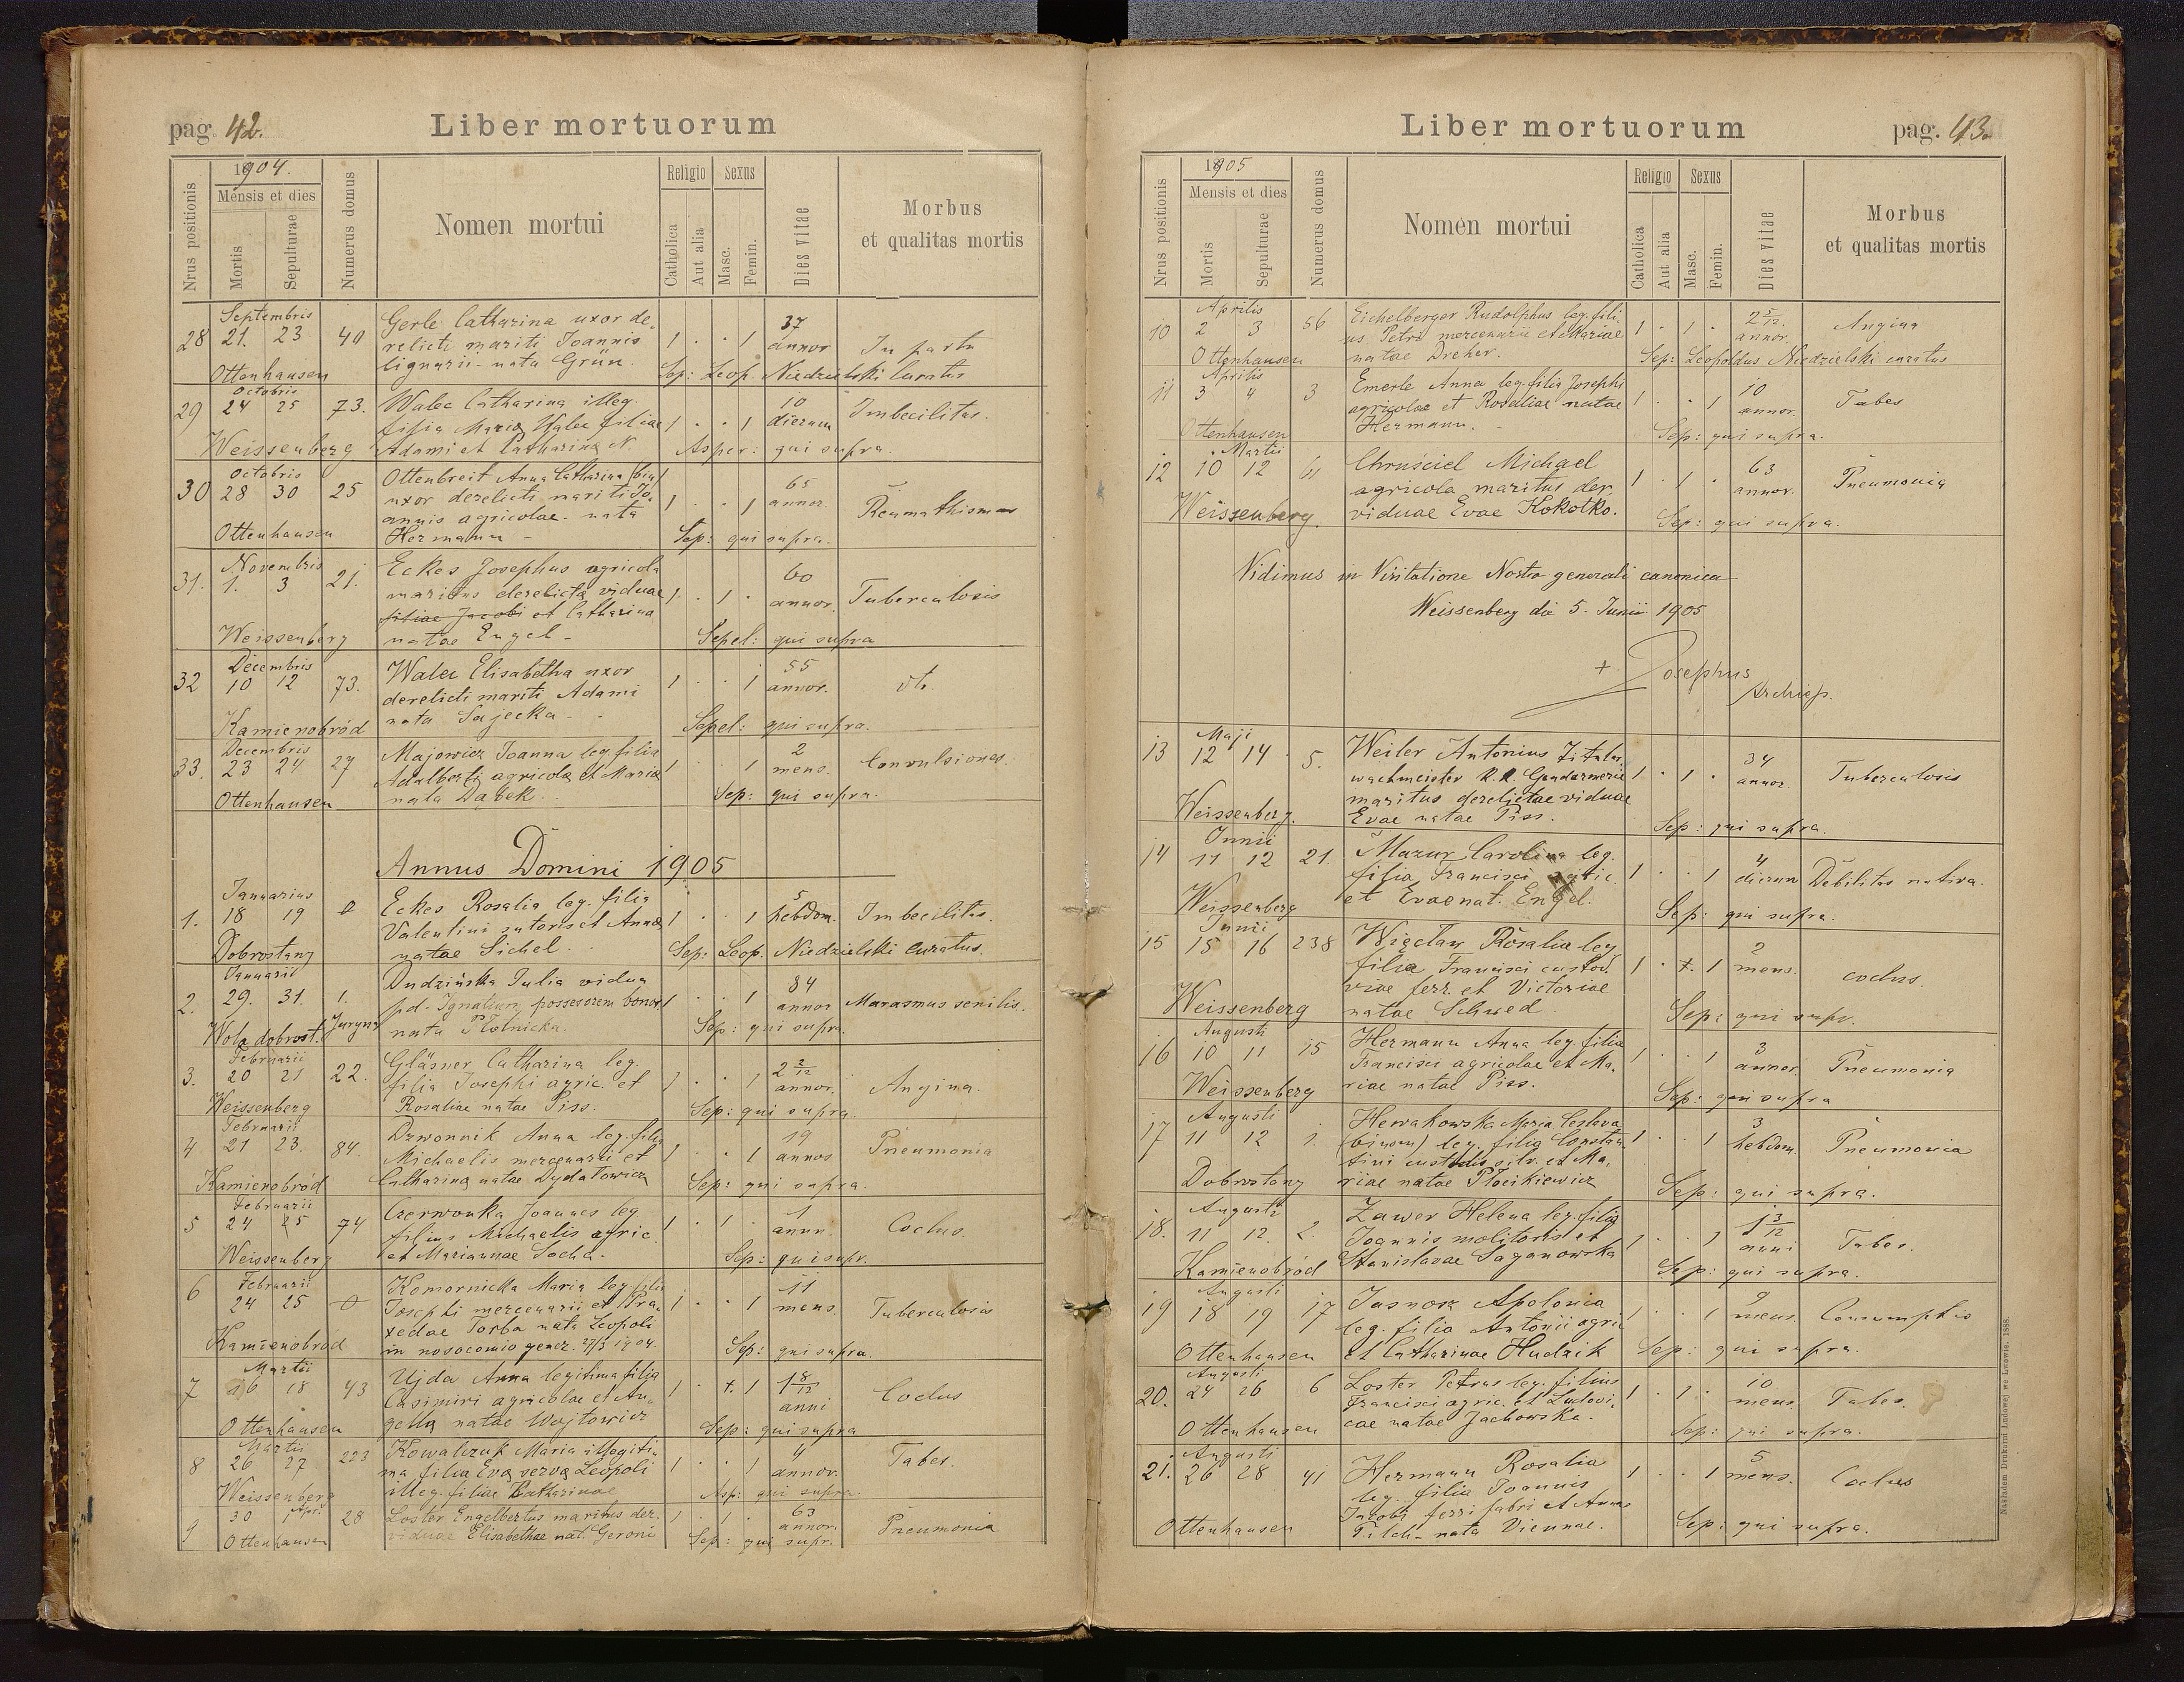 pag. 42.
Liber mortuorum
Nrus positionis
1904.
Mensis et dies
Mortis
Sepulturae
Numerus domus
Nomen mortui
Religio
Catholica
Aut alia
Sexus
Masc.
Femin.
Dies vitae
Morbus
et qualitas mortis
Septembris
28 21. 23. 40
Ottenhausen
Gerle Catharina uxor de-
relicti mariti Joannis
lignarii - nata Grün.
1 . . 1
37
annor
In partu
Sep: Leop. Niedzielski Curatus
Octobris
29 24 25 73.
Weissenberg
Walec Catharina illeg.
filia Maria Walec filiae
Adami et Catharina N.
1 . . 1
10
dierum
Imbecilitas.
Asper: qui supra.
Octobris
30 28 30 25
Ottenhausen
Ottenbreit Anna Catharina (bin)
uxor derelicti mariti Jo-
annis agricolae - nata
Hermann -
1 . . 1
65
annor.
Reumathismus
Sep: qui supra.
Novembris
31. 1. 3 21.
Weissenberg
Eckes Josephus agricola
maritus derelicta viduae
filiae Jacobi et Catharina
natae Engel -
1 . 1 .
60
annor.
Tuberculosis
Sepel: qui supra
Decembris
32 10 12 73.
Kamienobród
Walec Elisabetha uxor
derelicti mariti Adami
nata Sajecka -
1 . . 1
55
annor.
dt.
Sepel: qui supra.
Decembris
33. 23 24 27
Ottenhausen
Majowicz Joanna leg. filia
Adalberti agricola et Maria
nata Dabek
1 . . 1
2
mens.
Convulsiones.
Sep: qui supra.
Annus Domini 1905
Januarius
1. 18 19 0
Dobrostany
Eckes Rosalia leg. filia
Valentini sutoris et Anna
natae Sichel
1 . . 1
5
hebdom.
Imbecilitas.
Sep: Leop. Niedzielski Curatus.
Januarii
2. 29. 31. 1.
Wola dobrost.
Dudzińska Julia vidua
pd. Ignatium possesorem bonor.
nata Płotnicka.
1 . . 1
84
annor
Marasmus senilis.
Sep: qui supra.
Februarii
3. 20 21 22.
Weissenberg
Gläsner Catharina leg.
filia Josephi agric. et
Rosaliae natae Piss.
1 . . 1
2 2/12
annor.
Angina.
Sep: qui supra.
Februarii
4 21 23. 84.
Kamienobród
Dzwonnik Anna leg. filia
Michaelis mercenarii et
Catharina natae Dydatowicz
1 . . 1
19
annos
Pneumonia
Sep: qui supra.
Februarii
5 24 25 74
Weissenberg
Czerwonka Joannes leg.
filius Michaelis agric.
et Mariannae Socha.
1 . 1 .
1
annu.
Coclus.
Sep: qui supr.
Februarii
6 24 25 0
Kamienobrod
Komornicka Maria leg. filia
Josephi mercenarii et Pra-
xedae Torba nata Leopoli
in nosocomio gener. 27/3 1904.
1 . . 1
11
mens.
Tuberculosis
Sep: qui supra.
Martii
7 16 18 43
Ottenhausen
Ujda Anna legitima filia
Casimiri agricolae et An-
gella natae Wojtowicz
1 . t. 1
1 8/12
anni
Coclus
Sep: qui supra
Martii
8 26 27 223
Weissenberg
Kowalczuk Maria illegiti-
ma filia Eva serva Leopoli
illeg. filiae Catharinae
1 . . 1
4
annor.
Tabes.
Asp: qui supra.
9 30 1 Apr. 28
Ottenhausen
Loster Engelbertus maritus der.
viduae Elisabethae nat. Geroni
1 . 1 .
63
annor.
Pneumonia
Sep: qui supr.
Liber mortuorum
pag. 43.
Nrus positionis
1905
Mensis et dies
Mortis
Sepulturae
Numerus domus
Nomen mortui
Religio
Catholica
Aut alia
Sexus
Masc.
Femin.
Dies vitae
Morbus
et qualitas mortis
Aprilis
10 2 3 56
Ottenhausen
Eichelberger Rudolphus leg. fili-
us Petri mercenarii et Mariae
natae Dreher.
1 . 1 .
2 5/12
annor.
Angina
Sep: Leopoldus Niedzielski curatus
Aprilis
11 3 4 3
Ottenhausen
Emerle Anna leg. filia Josephi
agricolae et Rosaliae natae
Hermann.
1 . . 1
10
annor.
Tabes
Sep: qui supra.
Martii
12 10 12 61
Weissenberg.
Chruściel Michael
agricola maritus der.
viduae Evae Kokotko.
1 . 1 .
63
annor.
Pneumonia
Sep: qui supra.
Vidimus in Visitatione Nostra generali canonica
Weissenberg die 5. Junii 1905
+ Josephus
Archiep.
Maji
13 12 14 5.
Weissenberg.
Weiler Antonius Titular.
wachmeister k.k. Gendarmerie
maritus derelictae viduae
Evae natae Piss.
1 . 1 .
34
annor.
Tuberculosis
Sep: qui supra.
Junii
14 11 12 21.
Weissenberg
Mazur Carolina leg.
filia Francisci agric.
et Evae nat. Engel.
1 . . 1
4
dierum
Debilitas nativa.
Sep: qui supra.
Junii
15 15 16 238
Weissenberg
Więcław Rosalia leg.
filia Francisci custod.
viae ferr. et Victoriae
natae Schwed
1 . t. 1
2
mens.
coclus.
Sep: qui supr.
Augusti
16 10 11 15
Weissenberg
Hermann Anna leg. filia
Francisci agricolae et Ma-
riae natae Piss.
1 . . 1
3
annor.
Pneumonia
Sep: qui supra
Augusti
17 11 12 1.
Dobrostany
Hewakowska Maria Ceslava
(binom) leg. filia Constan
tini custodis silv. et Ma-
riae natae Płocikiewicz
1 . . 1
3
hebdom.
Pneumonia
Sep: qui supra.
Augusti
18. 11 12. 2.
Kamienobród
Zawer Helena leg. filia
Joannis molitoris et
Stanislavae Saganowska
1 . . 1
1 3/12
anni
Tabes.
Sep: qui supra.
Augusti
19 18 19 17
Ottenhausen
Jasnosz Apolonia
leg. filia Antonii agric
et Catharinae Hudzik
1 . . 1
9
mens.
Consumptio
Sep: qui supra.
Augusti
20. 24 26 6
Ottenhausen
Loster Petrus leg. filius
Francisci agric. et Ludovi-
cae natae Jachowska.
1 . 1 .
10
mens
Tabes.
Sep: qui supra.
Augusti
21. 26 28 41
Ottenhausen
Hermann Rosalia
leg. filia Joannis
Jacobi ferri fabri et Anna
Pilch - nata Viennae.
1 . . 1
5
mens.
Coclus
Sep: qui supra.
Nakładem Drukarni Ludowej we Lwowie. 1888.